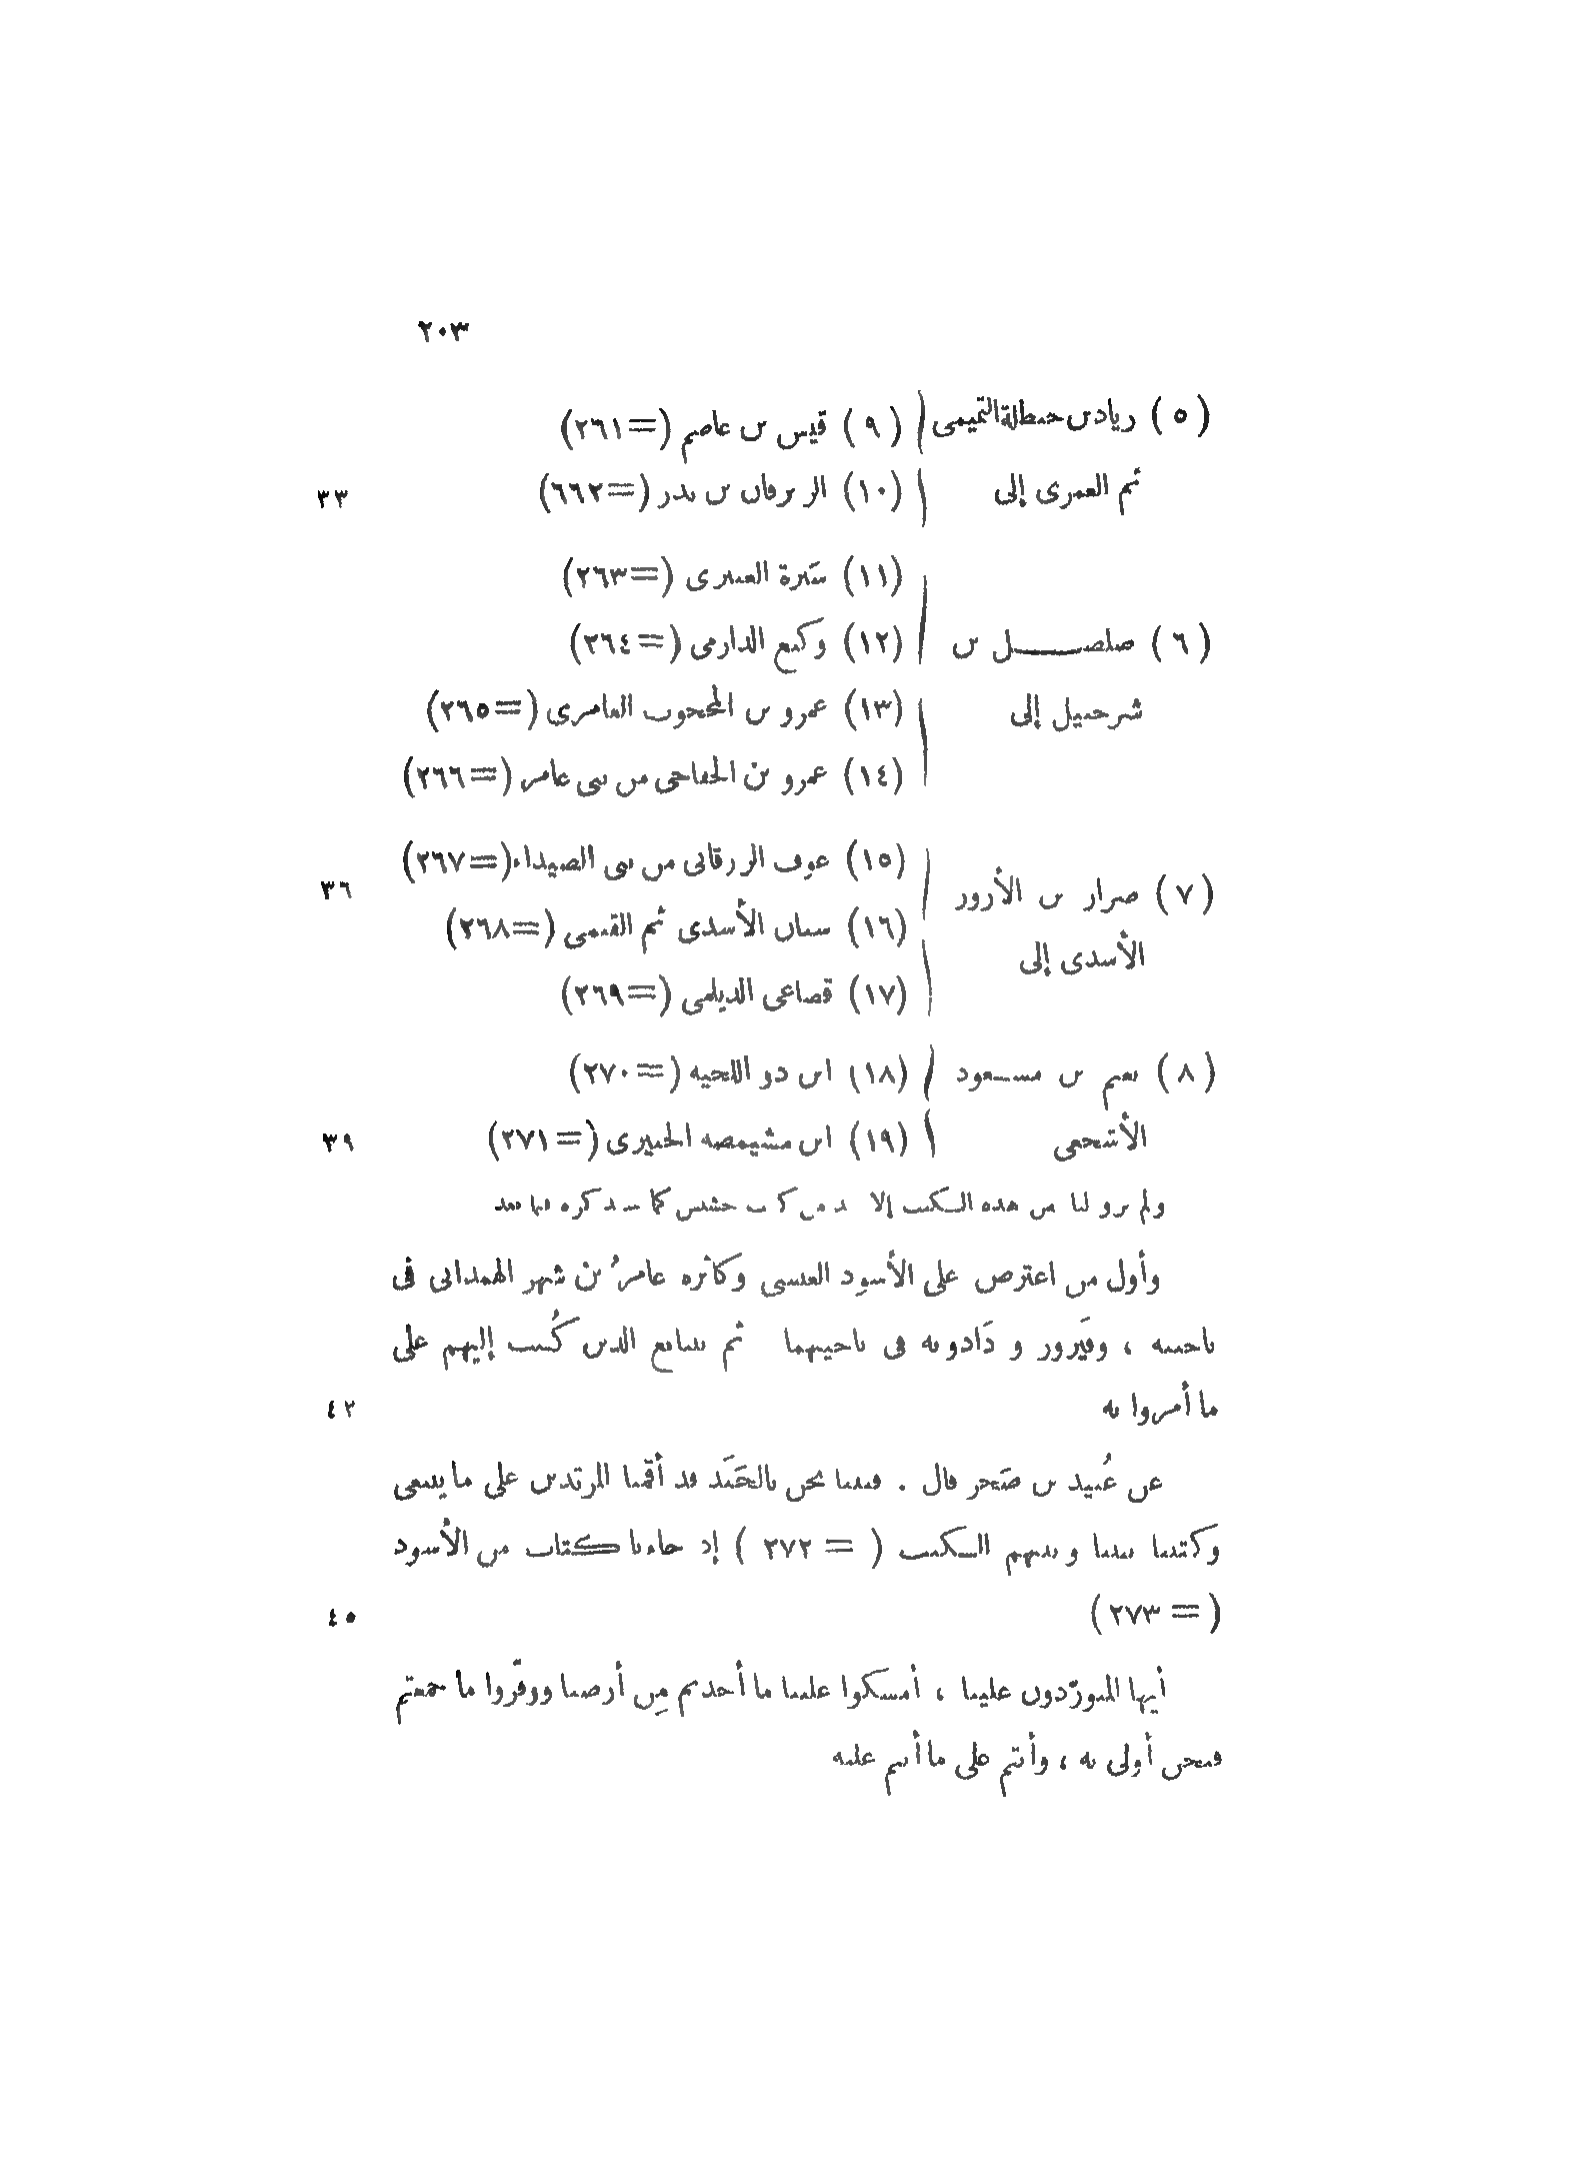 ٢٠٣
(٥) زياد بن حنظلة التميمى
ثم العمرى إلى
(٩) قيس بن عاصم (=٢٦١)
(١٠) الزبرقان بن بدر (=٦٦٢)
٣٣
(٦) صلصل بن
شرحبيل إلى
(١١) سَبرة العنبرى (=٢٦٣)
(١٢) وكيع الدارمى (=٢٦٤)
(١٣) عمرو بن المحجوب العامرى (=٢٦٥)
(١٤) عمرو بن الخفاجى من بنى عامر (=٢٦٦)
(٧) ضرار بن الأزور
الأسدى إلى
(١٥) عوف الزرقانى من بنى الصيداء (=٢٦٧)
٣٦
(١٦) سنان الأسدى ثم الغنمى (=٢٦٨)
(١٧) قضاعى الديلمى (=٢٦٩)
(٨) نعيم بن مسعود
الأشجعى
(١٨) ابن ذو اللحيه (=٢٧٠)
(١٩) ابن مشيمصه الجبيرى (=٢٧١)
٣٩
ولم يرو لنا من هذه الكتب إلا من كتب جشيش كما سنذكره فيما بعد
وأول من اعترض على الأسود العنسى وكاثره عامرُ بن شهر الهمدانى فى
ناحيته ، وفَيروز و دَاذويه فى ناحيتهما ثم تتابع الذين كُتب إليهم على
ما أمروا به
٤٢
عن عُبيد بن صَخر قال . فبينا نحن بالجَنَد قد أقمنا المرتدين على ما ينبغى
وكتبنا بيننا وبينهم الكتب ( = ٢٧٢ ) إذ جاءنا كتاب من الأسود
( = ٢٧٣ )
٤٥
أيها المتورّدون علينا ، أمسكوا علينا ما أخذتم مِن أرضنا ووفّروا ما جمعتم
فنحن أولى به ، وأنتم على ما أنتم عليه